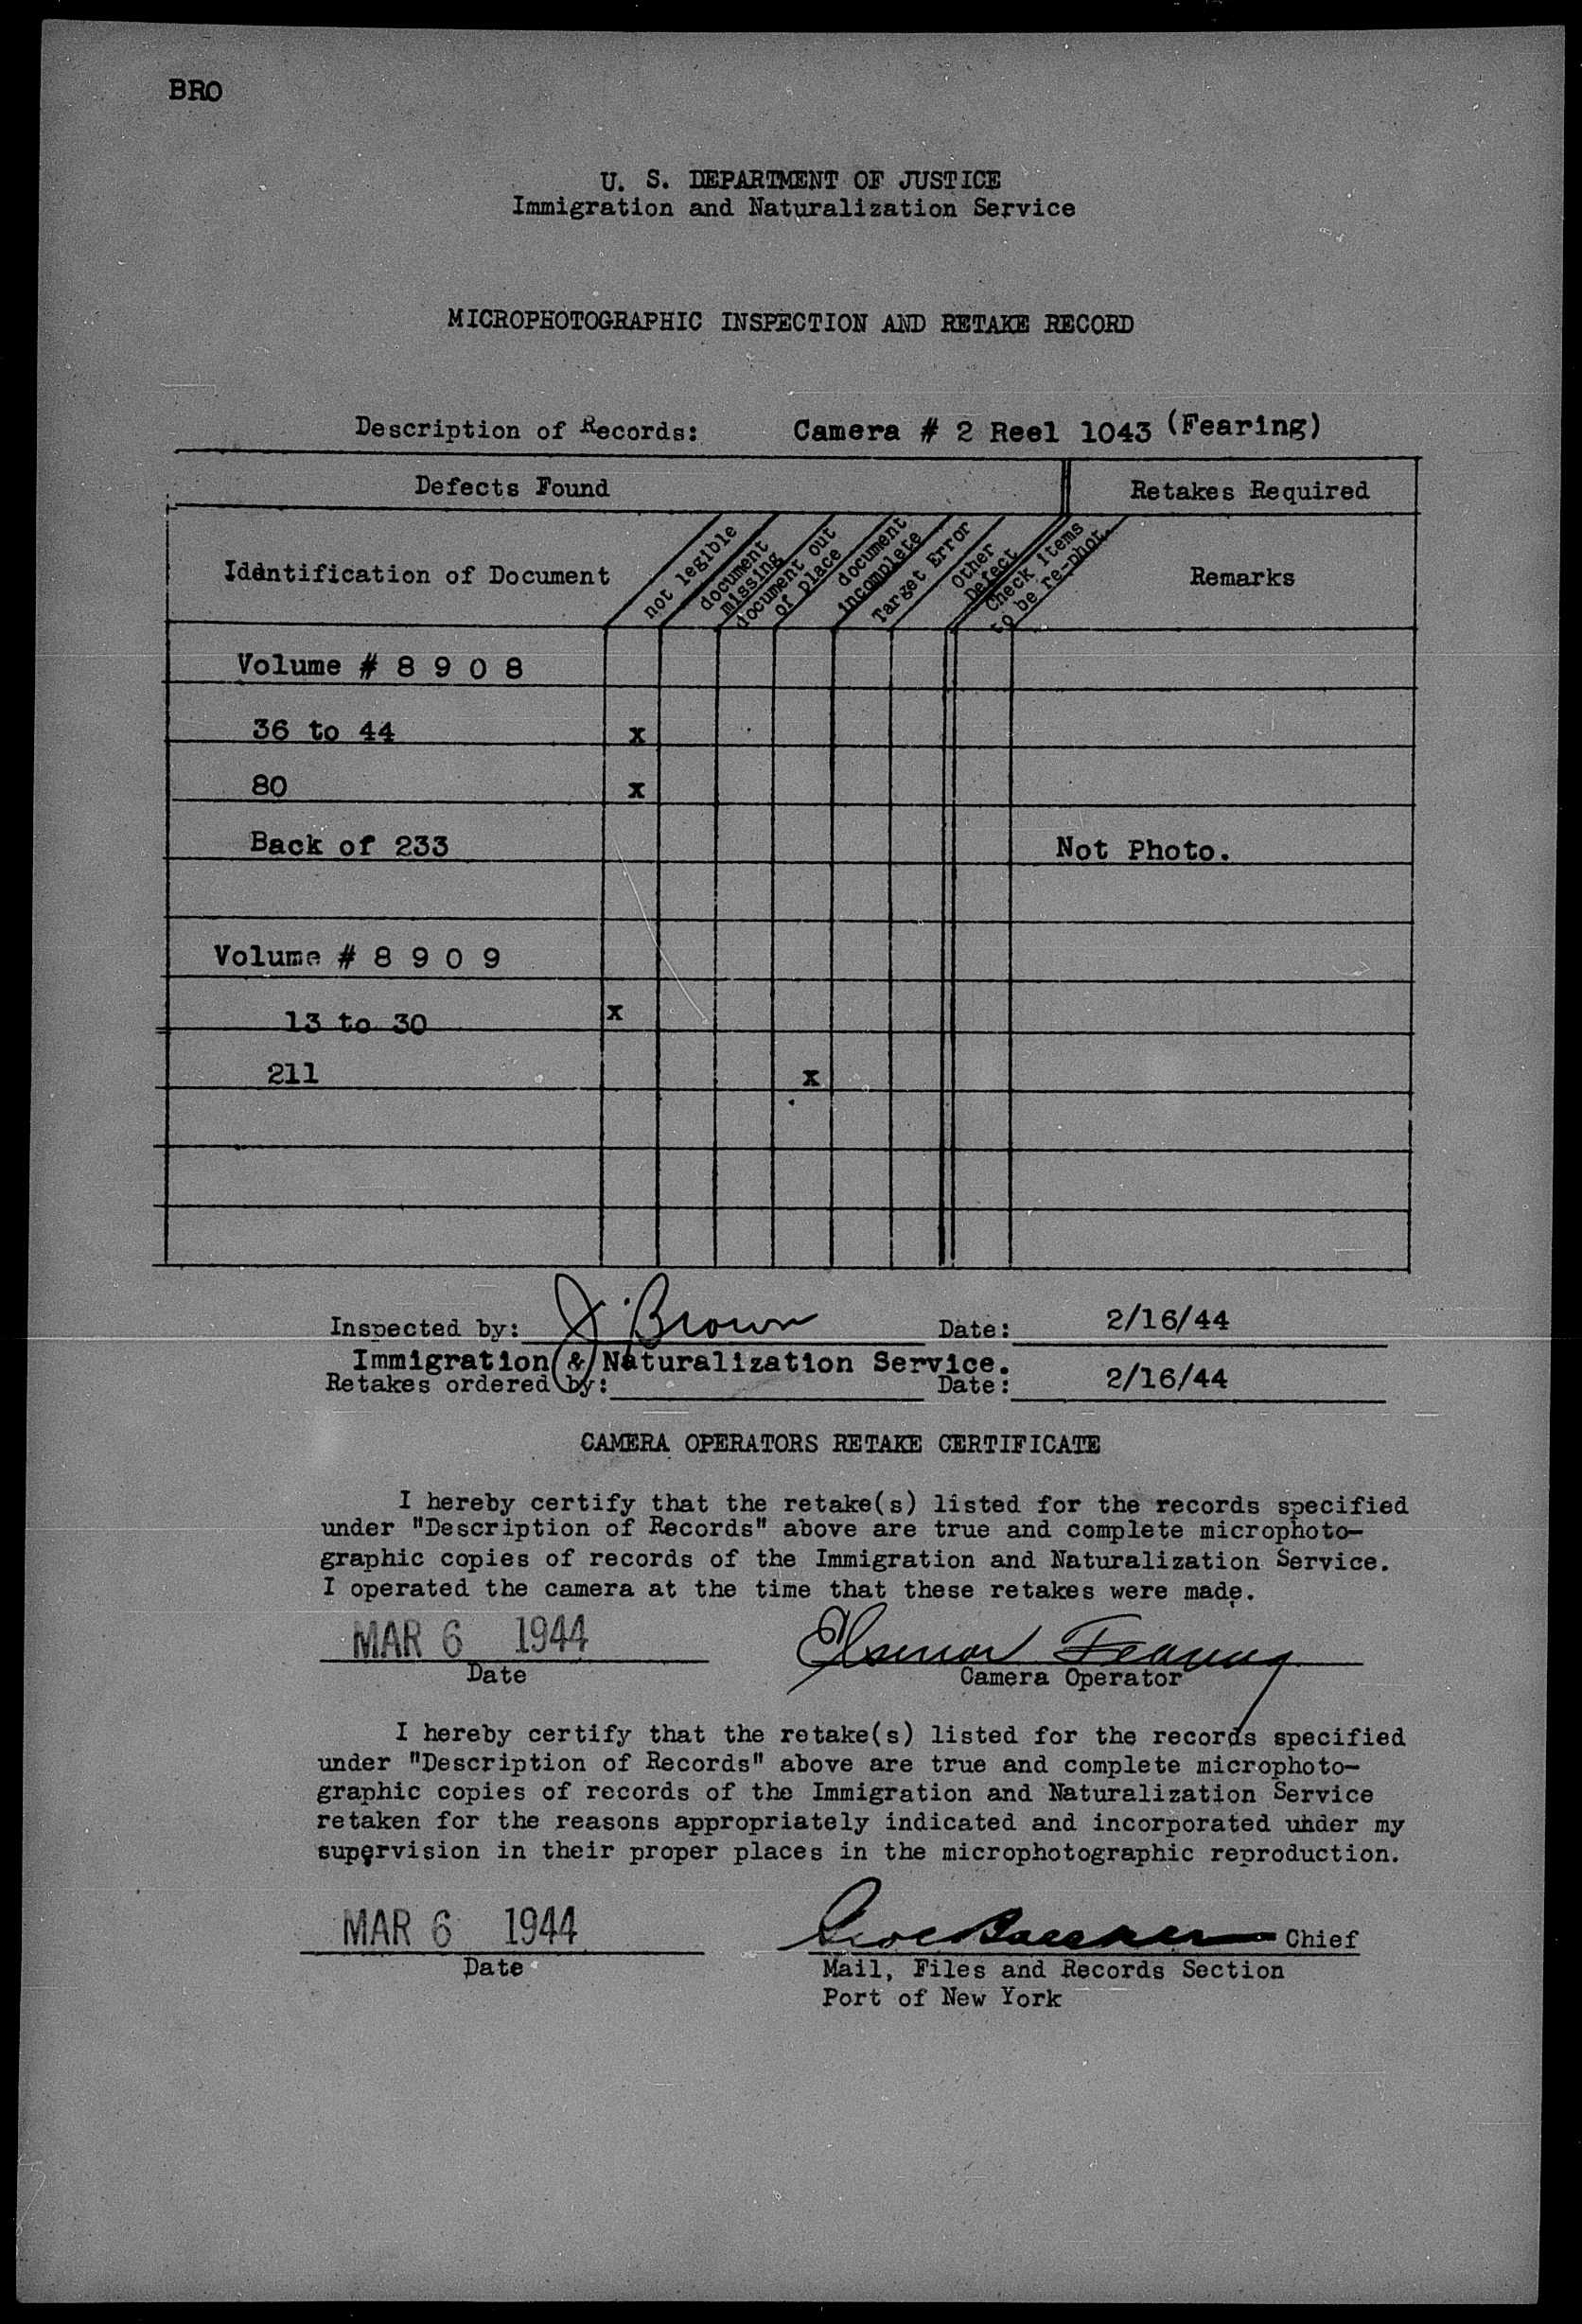 BRO
U. S. DEPARTMENT OF JUSTICE
Immigration and Naturalization Service
MICROPHOTOGRAPHIC INSPECTION AND RETAKE RECORD
Description of Records: Camera # 2 Reel 1043 (Fearing)
Defects Found Retakes Required
Identification of Document
not legible
document
missing
document out
of place
document
incomplete
Target Error
Other
Defect
Check items
to be re-phot.
Remarks
Volume # 8 9 0 8
36 to 44 x
80 x
Back of 233 Not Photo.
Volume # 8 9 0 9
13 to 30 x
211 x
Inspected by: J. Brown Date: 2/16/44
Immigration & Naturalization Service.
Retakes ordered by: Date: 2/16/44
CAMERA OPERATORS RETAKE CERTIFICATE
I hereby certify that the retake(s) listed for the records specified
under "Description of Records" above are true and complete microphoto-
graphic copies of records of the Immigration and Naturalization Service.
I operated the camera at the time that these retakes were made.
MAR 6 1944 Eleanor Fearing
Date Camera Operator
I hereby certify that the retake(s) listed for the records specified
under "Description of Records" above are true and complete microphoto-
graphic copies of records of the Immigration and Naturalization Service
retaken for the reasons appropriately indicated and incorporated under my
supervision in their proper places in the microphotographic reproduction.
MAR 6 1944 Chief
Date Mail, Files and Records Section
Port of New York